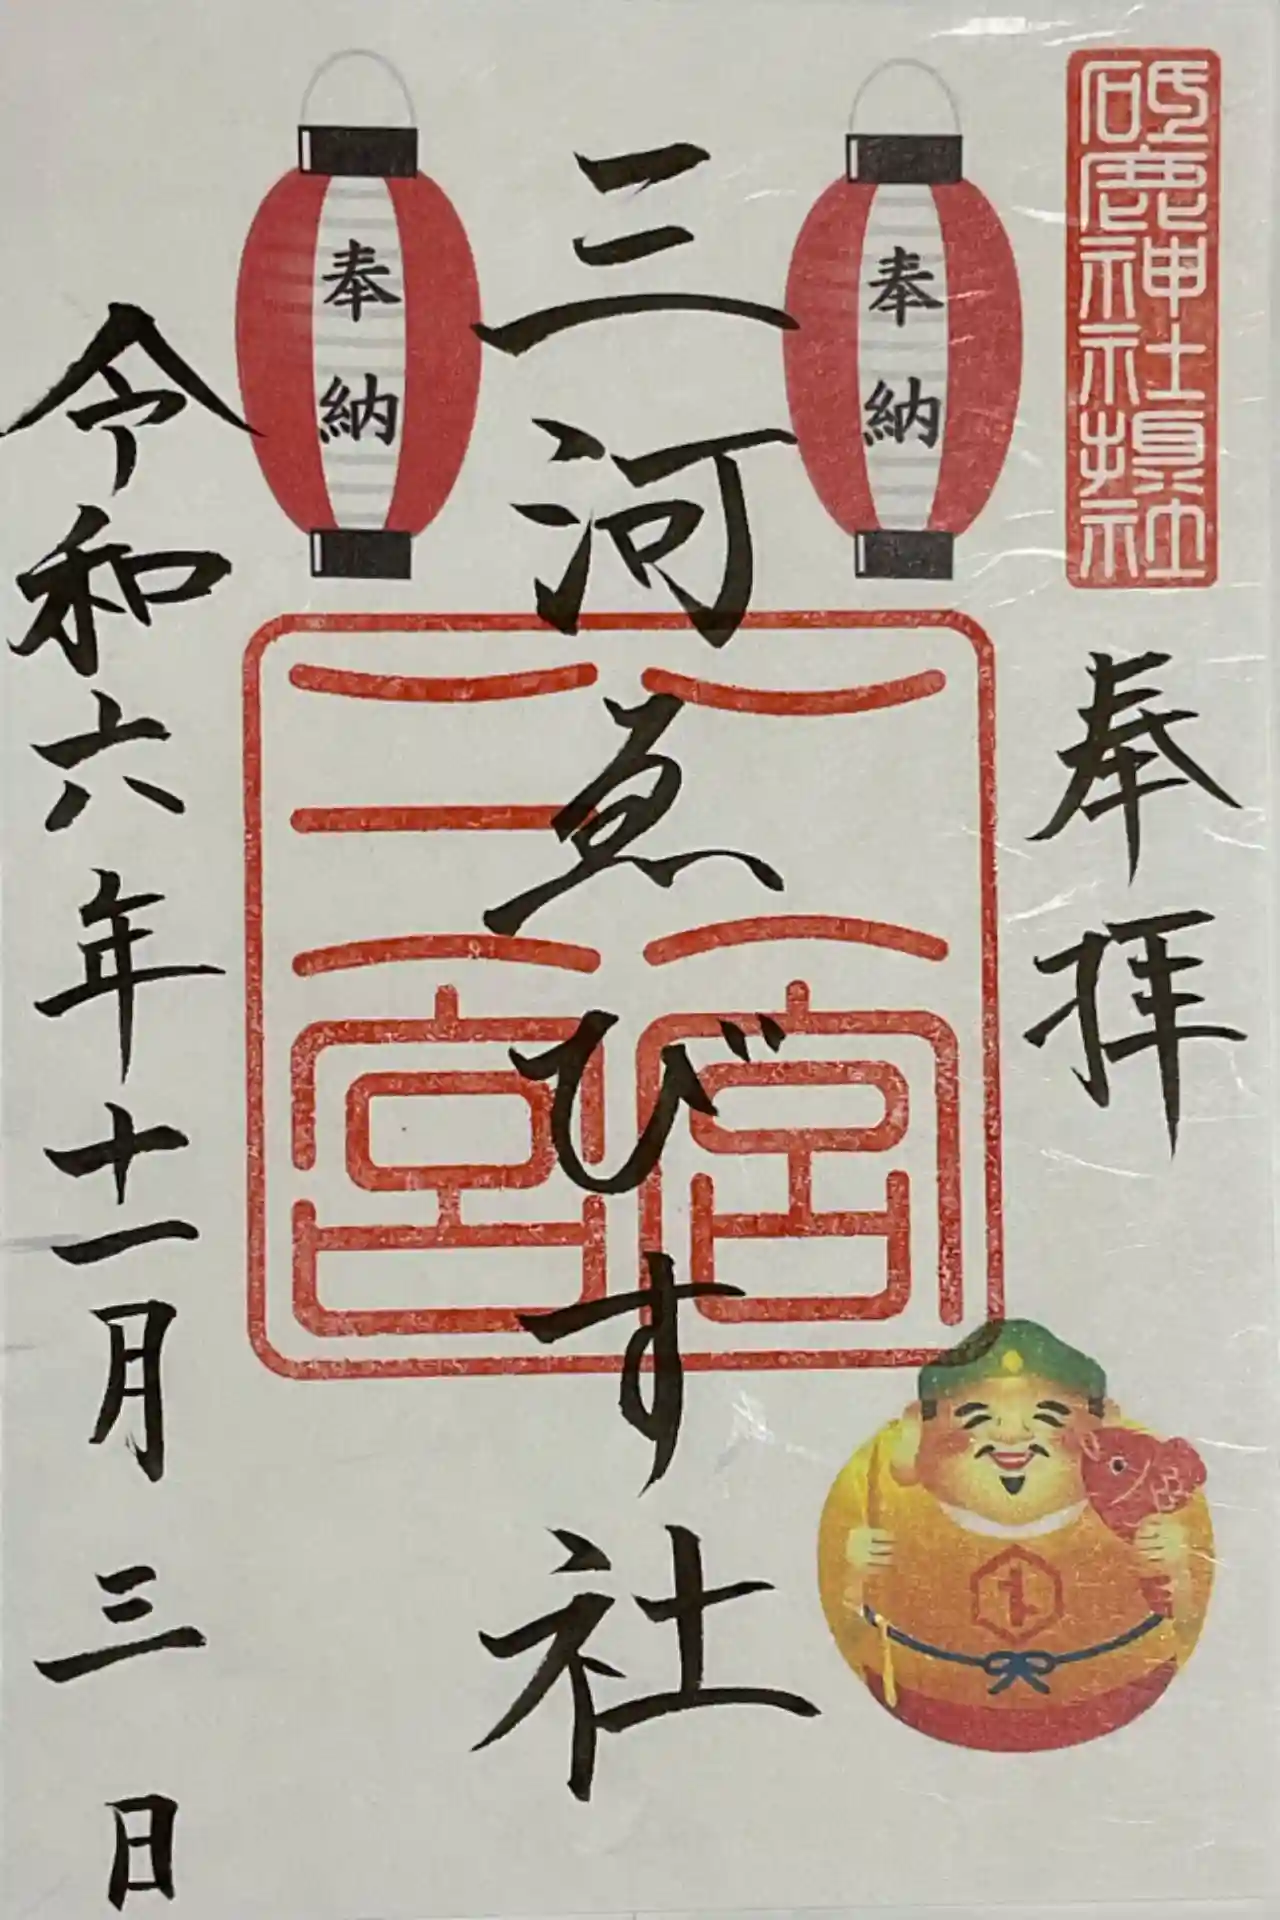 砥鹿神社摂社
奉拝
奉納
奉納
三河ゑびす社
二宮
三宮
令和六年十一月三日